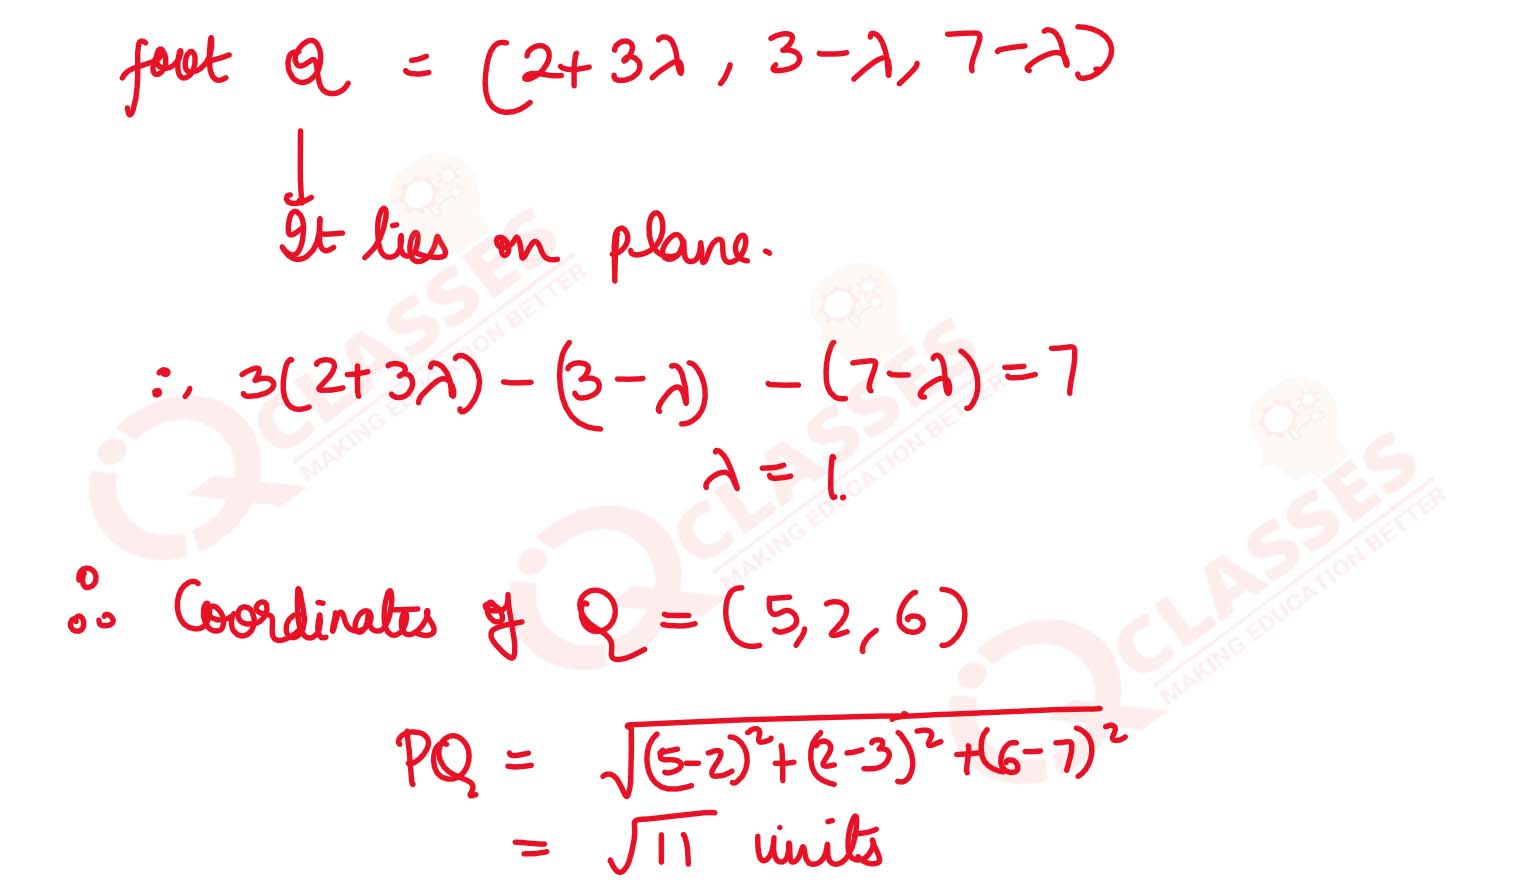 foot Q = (2+3λ, 3-λ, 7-λ)
It lies on plane.
∴, 3(2+3λ) - (3-λ) - (7-λ) = 7
λ = 1.
∴ Coordinates of Q = (5, 2, 6)
PQ = √((5-2)² + (2-3)² + (6-7)²)
= √11 units
iQ CLASSES
MAKING EDUCATION BETTER
iQ CLASSES
MAKING EDUCATION BETTER
iQ CLASSES
MAKING EDUCATION BETTER